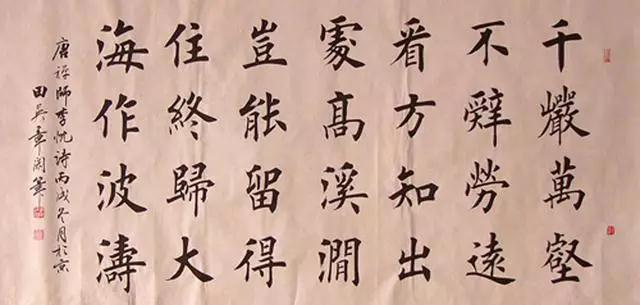 千巖萬壑
不辭勞遠
看方知出
處高溪澗
豈能留得
住終歸大
海作波濤
唐禪師李忱詩丙戌冬月於京
田英章閑筆